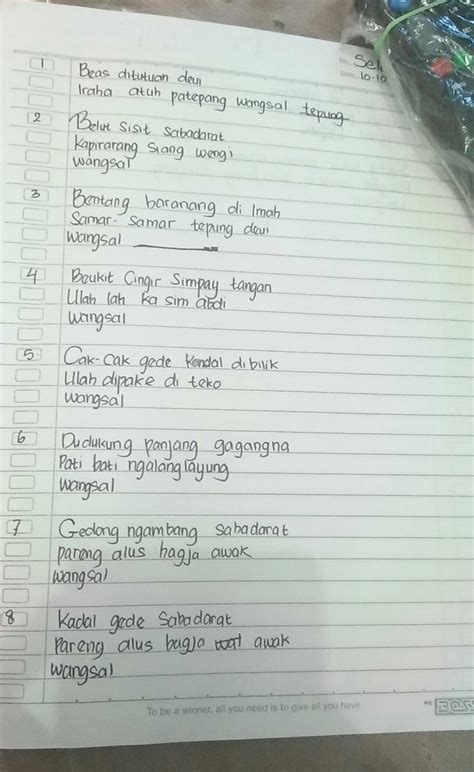 Sel
10-10
1 Beas ditutuan deui
Iraha atuh patepang wangsal tepung
2 Belut Sisit Sabadarat
Kapirarang siang wengi
wangsal
3 Bentang baranang di Imah
Samar-samar tepung deui
wangsal
4 Beukit Cingir Simpay tangan
Ulah lah ka sim abdi
wangsal
5. Cak-Cak gede Kondal dibilik
Ulah dipake di teko
wangsal
6 Dudukung panjang gagangna
Pati bati ngalanglayung
wangsal
7 Gedong ngambang Sabadarat
pareng alus bagja awak
wangsal
8 Kadal gede Sabadarat
Pareng alus bagja awak
wangsal
To be a winner, all you need is to give all you have